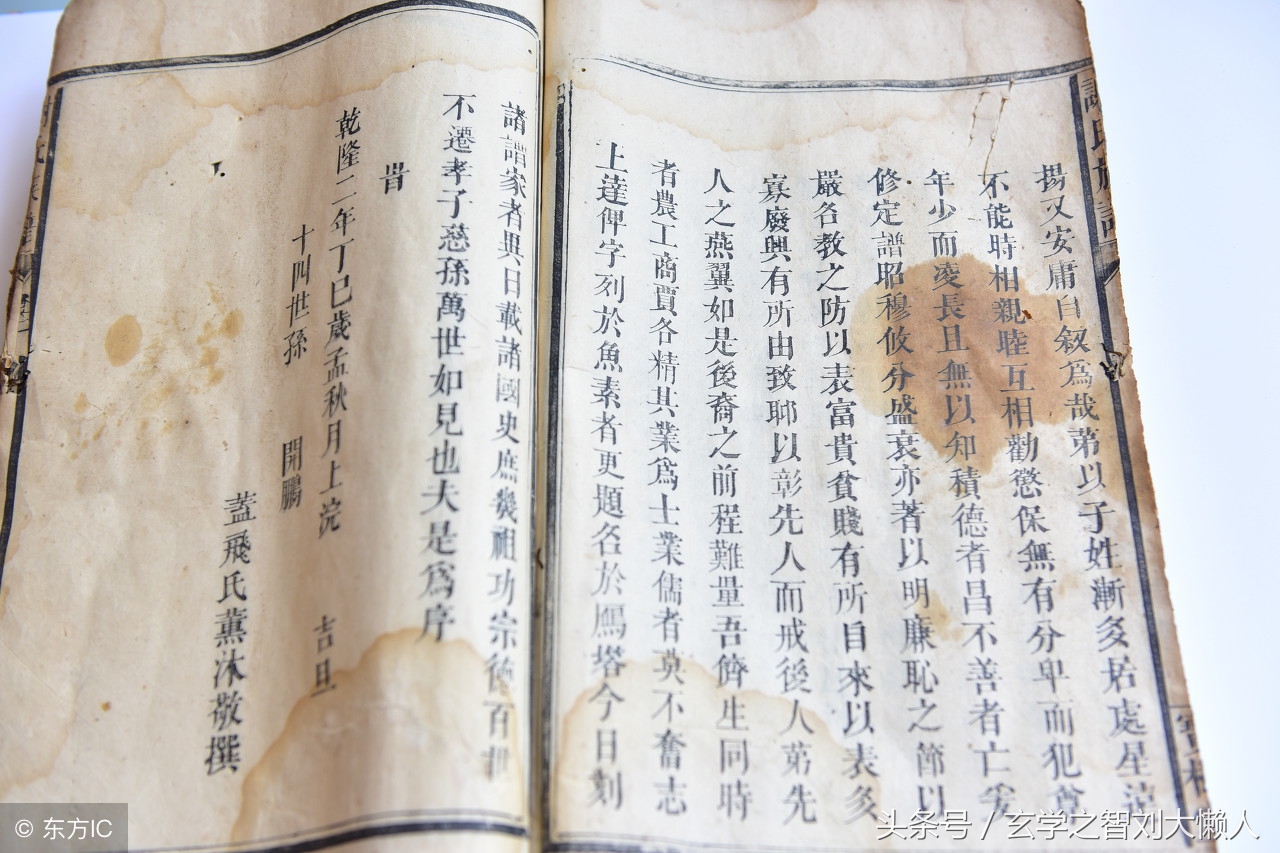 揚又安庸自叙爲哉弟以子姓漸多居處星
不能時相親睦互相勸懲保無有分卑而犯尊
年少而凌長且無以知積德者昌不善者亡爰
修定譜昭穆攸分盛衰亦著以明廉恥之節以
嚴名教之防以表富貴貧賤有所自來以表多
寡廢興有所由致耶以彰先人而戒後人第先
人之燕翼如是後裔之前程難量吾儕生同時
者農工商賈各精其業爲士業儒者莫不奮志
上達俾字列於魚素者更題名於鴈塔今日刻
諸譜家者異日載諸國史庶幾祖功宗德百世
不遷孝子慈孫萬世如見也夫是爲序
旹
乾隆二年丁巳歲孟秋月上浣 吉旦
十四世孫 開鵬
蓋飛氏薰沐敬撰
氏族譜
© 东方IC
头条号 / 玄学之智刘大懒人